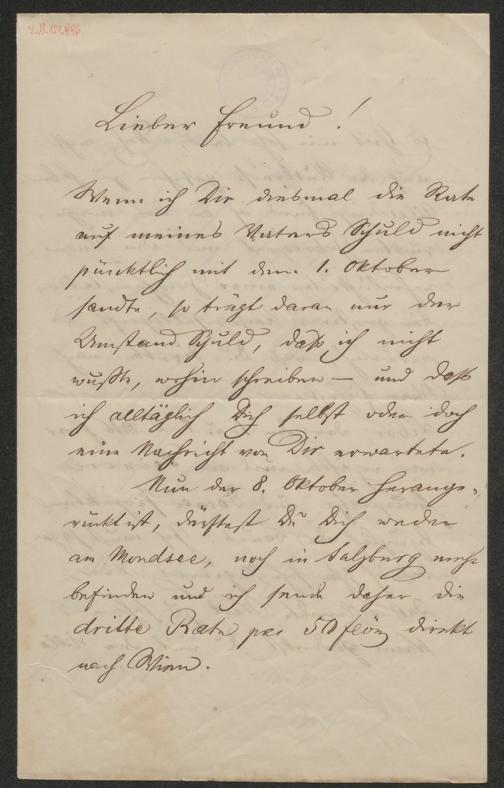 Lieber Freund!
Wenn ich Dir diesmal die Rate
auf meines Vaters Schuld nicht
pünktlich mit dem 1. Oktober
sandte, so trägt daran nur der
Umstand Schuld, daß ich nicht
wußte, wohin schreiben – und daß
ich alltäglich Dich selbst oder doch
eine Nachricht von Dir erwartete.
Nun der 8. Oktober herange-
rückt ist, dürftest Du Dich weder
am Mondsee, noch in Salzburg mehr
befinden und ich sende daher die
dritte Rate per 50 fl öW direkt
nach Wien.